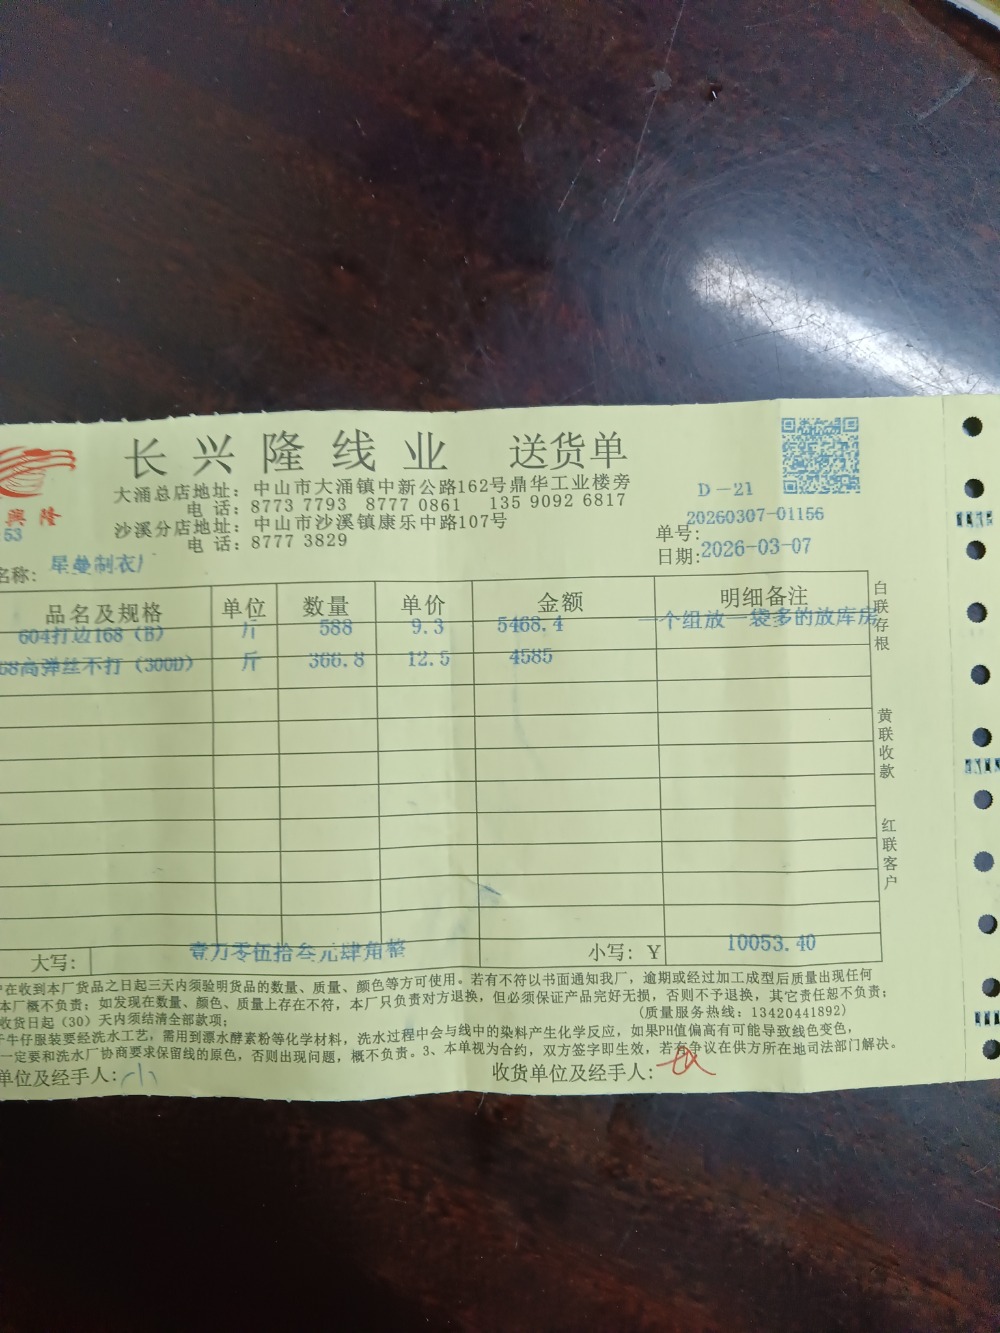 长兴隆线业 送货单
大涌总店地址：中山市大涌镇中新公路162号鼎华工业楼旁
电 话：8773 7793 8777 0861 135 9092 6817
沙溪分店地址：中山市沙溪镇康乐中路107号
电 话：8777 3829
興隆
53
D-21
单号：20260307-01156
日期：2026-03-07
名称：星曼制衣厂
品名及规格 单位 数量 单价 金额 明细备注
604打边168（B） 斤 588 9.3 5468.4 一个组放一袋多的放库房
68高弹丝不打（300D） 斤 366.8 12.5 4585
大写：壹万零伍拾叁元肆角整 小写：￥ 10053.40
白联存根
黄联收款
红联客户
户在收到本厂货品之日起三天内须验明货品的数量、质量、颜色等方可使用。若有不符以书面通知我厂，逾期或经过加工成型后质量出现任何
本厂概不负责；如发现在数量、颜色、质量上存在不符，本厂只负责对方退换，但必须保证产品完好无损，否则不予退换，其它责任恕不负责；
收货日起（30）天内须结清全部款项； （质量服务热线：13420441892）
牛仔服装要经洗水工艺，需用到漂水酵素粉等化学材料，洗水过程中会与线中的染料产生化学反应，如果PH值偏高有可能导致线色变色，
一定要和洗水厂协商要求保留线的原色，否则出现问题，概不负责。3、本单视为合约，双方签字即生效，若有争议在供方所在地司法部门解决。
单位及经手人： 收货单位及经手人：